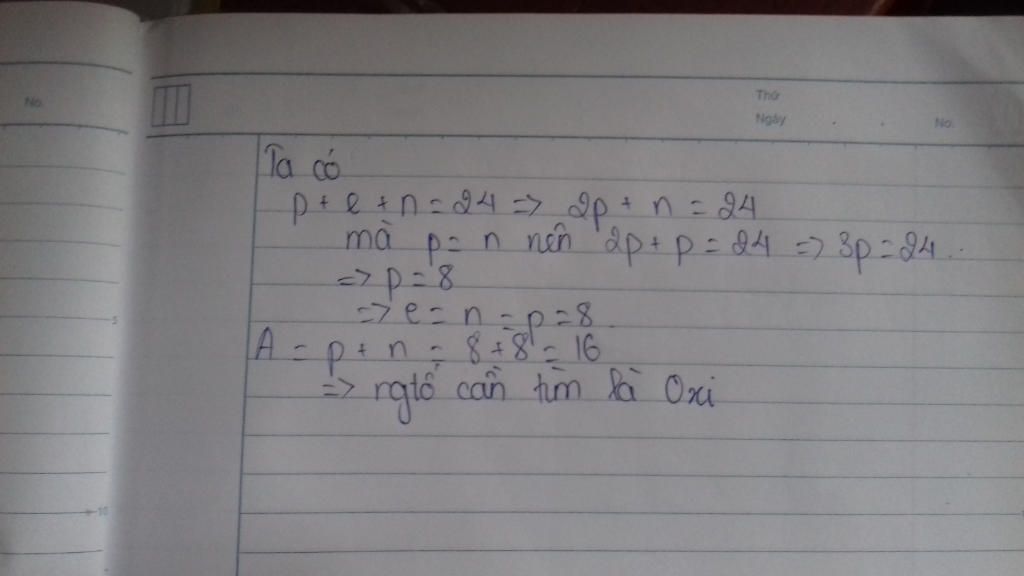 No.
Thứ
Ngày . . No.
Ta có
p + e + n = 24 => 2p + n = 24
mà p = n nên 2p + p = 24 => 3p = 24
=> p = 8
=> e = n = p = 8
5
A = p + n = 8 + 8 = 16
=> ngtố cần tìm là Oxi
10